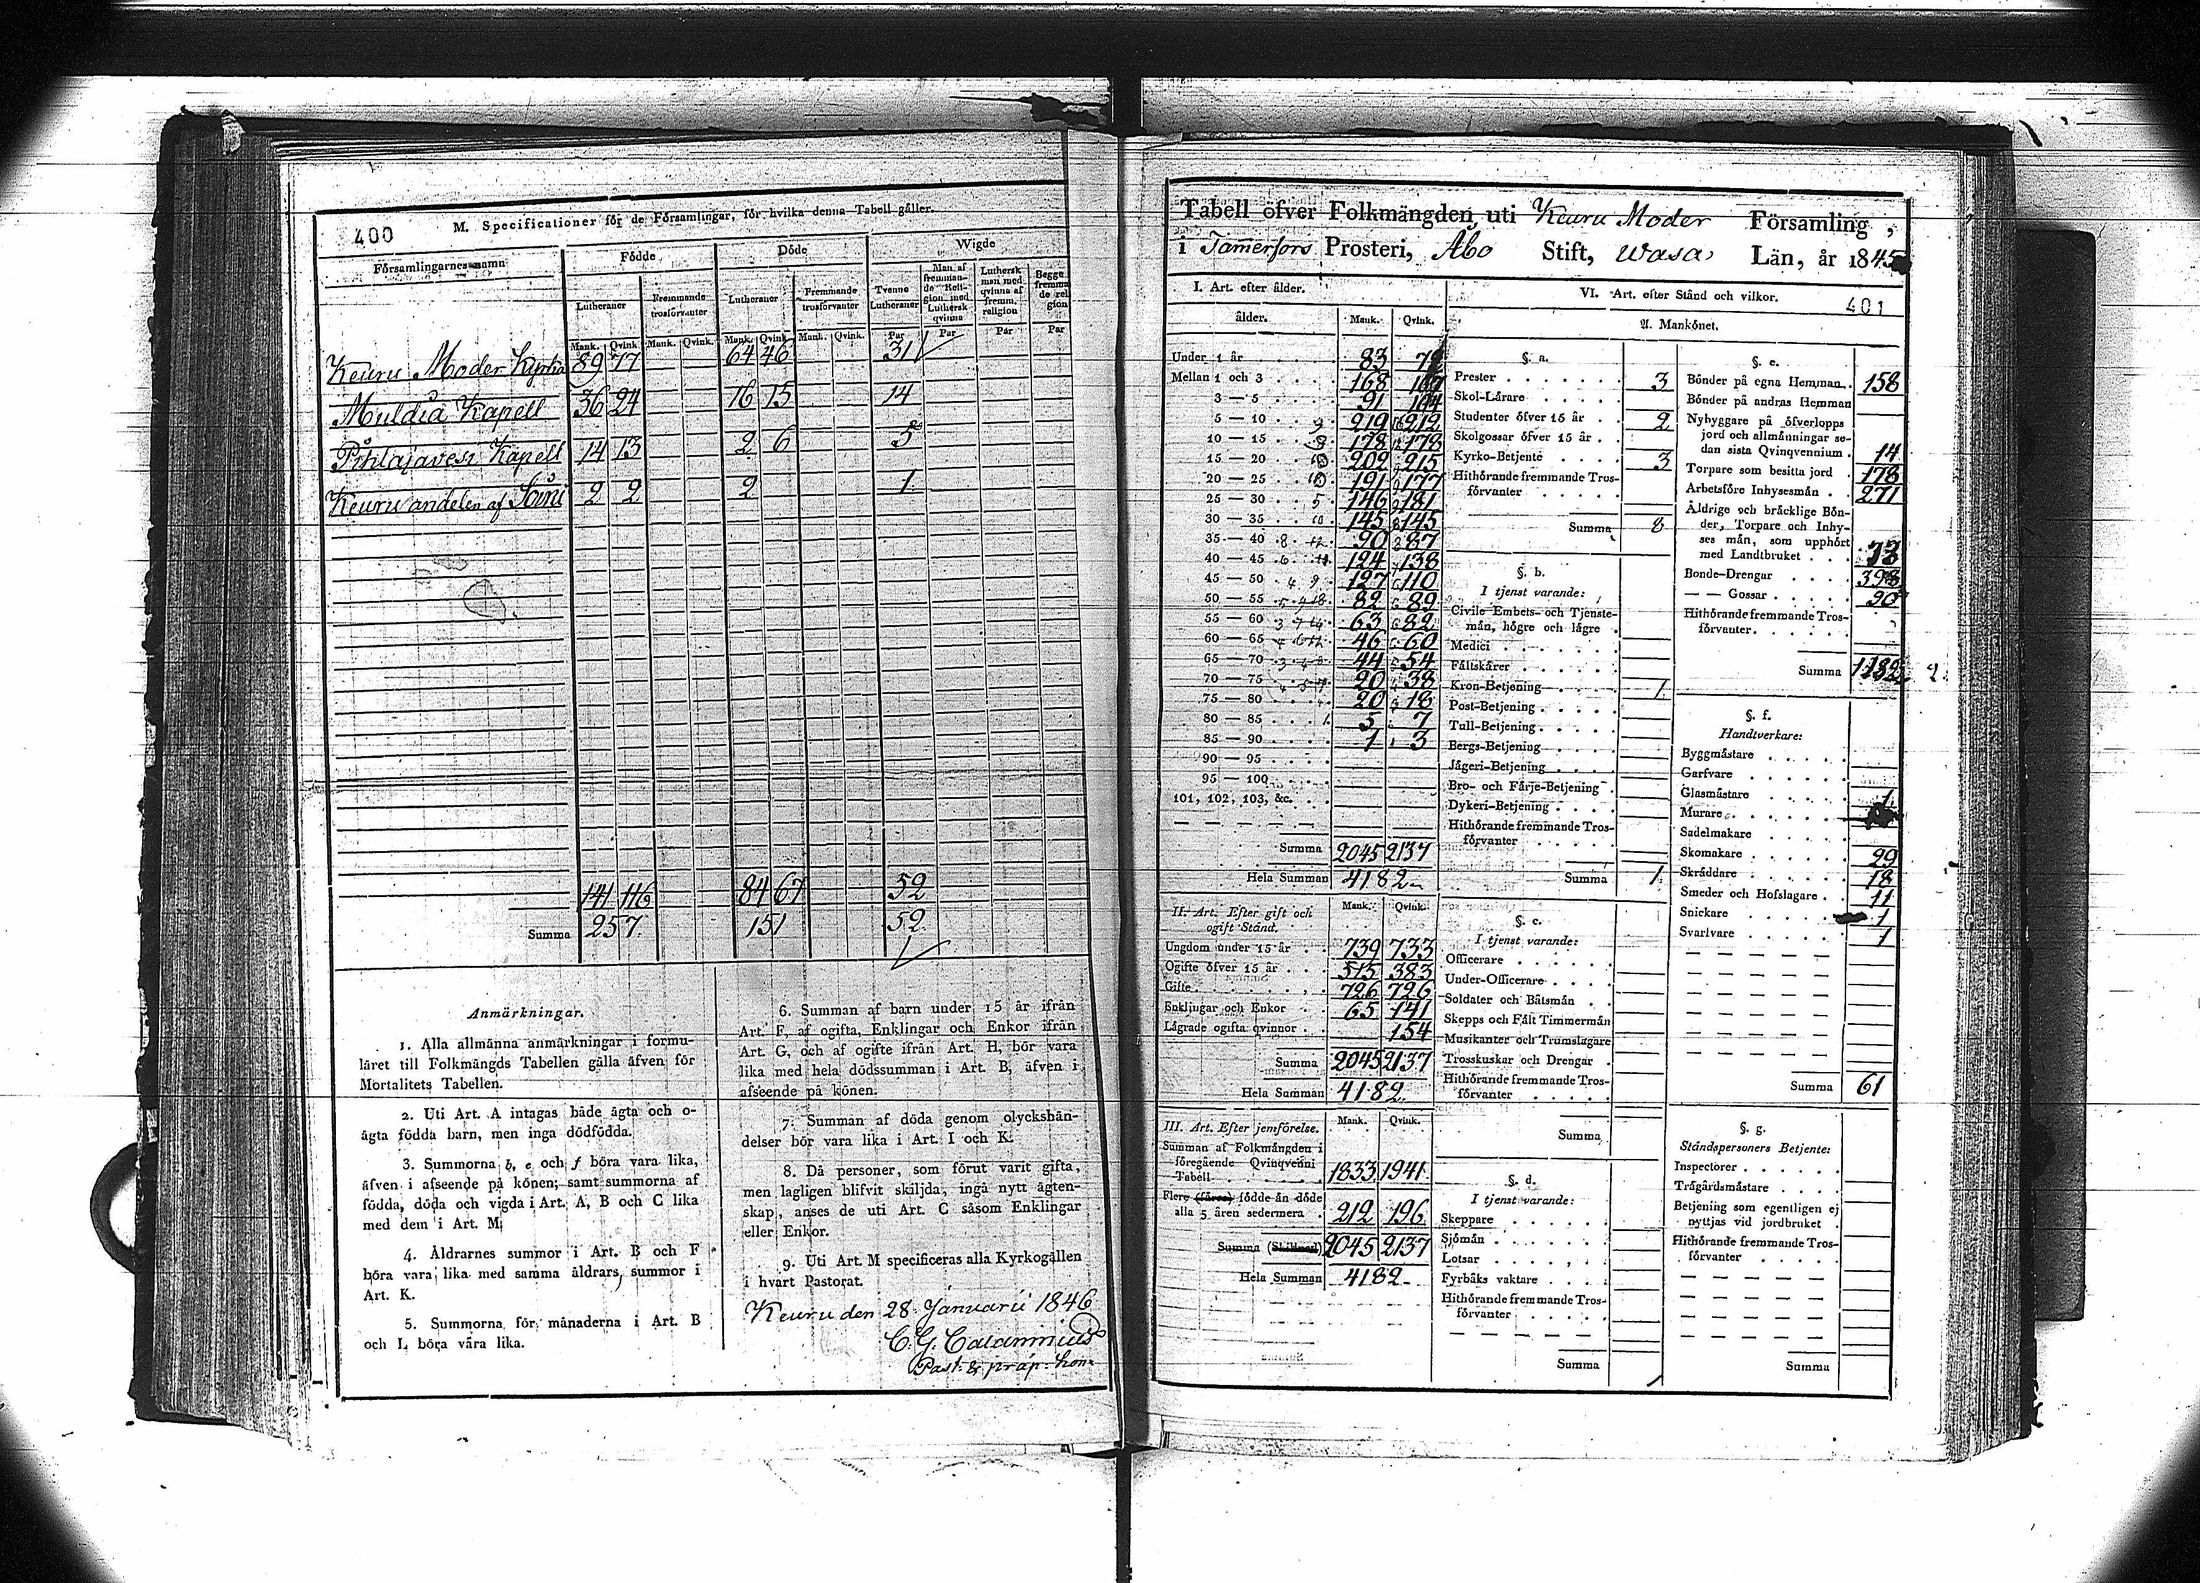 400
M. Specificationer för de Församlingar, för hvilka denna Tabell gäller.
Församlingarnes namn
Födde
Döde
Wigde
Lutheraner
Fremmande trosförvanter
Lutheraner
Fremmande trosförvanter
Tvenne Lutheraner
Man af fremmande Religion med Luthersk qvinna
Luthersk man med qvinna af fremm. religion
Begge fremmande religion
Mank. Qvink. Mank. Qvink. Mank. Qvink. Mank. Qvink. Par Par Par Par
Keuru Moder Kyrka 89 77 64 46 31
Muldia Kapell 36 24 16 15 14
Pihlajavesi Kapell 14 13 2 6 5
Keuru andelen af 2 2 2 1
141 116 84 67 52
Summa 257 151 52
Anmärkningar.
1. Alla allmänna anmärkningar i formu-
läret till Folkmängds Tabellen gälla äfven för
Mortalitets Tabellen.
2. Uti Art. A intagas både ägta och o-
ägta födda barn, men inga dödfödda.
3. Summorna b, e och f böra vara lika,
äfven i afseende på könen; samt summorna af
födda, döda och vigda i Art. A, B och C lika
med dem i Art. M.
4. Åldrarnes summor i Art. B och F
böra vara lika med samma åldrars summor i
Art. K.
5. Summorna för månaderna i Art. B
och L böra vara lika.
6. Summan af barn under 15 år ifrån
Art. F, af ogifta, Enklingar och Enkor ifrån
Art. G, och af ogifte ifrån Art. H, bör vara
lika med hela dödssumman i Art. B, äfven i
afseende på könen.
7. Summan af döda genom olyckshän-
delser bör vara lika i Art. I och K.
8. Då personer, som förut varit gifta,
men lagligen blifvit skiljda, ingå nytt ägten-
skap, anses de uti Art. C såsom Enklingar
eller Enkor.
9. Uti Art. M specificeras alla Kyrkogällen
i hvart Pastorat.
Keuru den 28 Januarii 1846
Tabell öfver Folkmängden uti Keuru Moder Församling,
i Tamerfors Prosteri, Åbo Stift, Wasa Län, år 1845
401
I. Art. efter ålder.
ålder. Mank. Qvink.
Under 1 år 83
Mellan 1 och 3 168
3 — 5 91 104
5 — 10 219 212
10 — 15 178 178
15 — 20 202 215
20 — 25 191 177
25 — 30 146 181
30 — 35 145 145
35 — 40 90 87
40 — 45 124 138
45 — 50 127 110
50 — 55 82 89
55 — 60 63 82
60 — 65 46 60
65 — 70 44 54
70 — 75 20 38
75 — 80 20 18
80 — 85 5 7
85 — 90 1 3
90 — 95
95 — 100
101, 102, 103, &c.
Summa 2045 2137
Hela Summan 4182
II. Art. Efter gift och ogift Stånd.
Mank. Qvink.
Ungdom under 15 år 739 733
Ogifte öfver 15 år 515 383
Gifte 726 726
Enklingar och Enkor 65 141
Lägrade ogifta qvinnor 154
Summa 2045 2137
Hela Summan 4182
III. Art. Efter jemförelse. Mank. Qvink.
Summan af Folkmängden i
föregående Qvinqvenni
Tabell 1833 1941
Flere (färre) födde än döde
alla 5 åren sedermera 212 196
Summa (Skillnad) 2045 2137
Hela Summan 4182
VI. Art. efter Stånd och vilkor.
A. Mankönet.
§. a.
Prester 3
Skol-Lärare
Studenter öfver 15 år 2
Skolgossar öfver 15 år
Kyrko-Betjente 3
Hithörande fremmande Tros-
förvanter
Summa 8
§. b.
I tjenst varande:
Civile Embets- och Tjenste-
män, högre och lägre
Medici
Fältskärer
Kron-Betjening 1
Post-Betjening
Tull-Betjening
Bergs-Betjening
Jägeri-Betjening
Bro- och Färje-Betjening
Dykeri-Betjening
Hithörande fremmande Tros-
förvanter
Summa 1
§. c.
I tjenst varande:
Officerare
Under-Officerare
Soldater och Båtsmän
Skepps och Fält Timmermän
Musikanter och Trumslagare
Trosskuskar och Drengar
Hithörande fremmande Tros-
förvanter
Summa
§. d.
I tjenst varande:
Skeppare
Sjömän
Lotsar
Fyrbåks vaktare
Hithörande fremmande Tros-
förvanter
Summa
§. e.
Bönder på egna Hemman 158
Bönder på andras Hemman
Nybyggare på öfverlopps
jord och allmänningar se-
dan sista Qvinqvennium 14
Torpare som besitta jord 178
Arbetsföre Inhysesmän 271
Åldrige och bräcklige Bön-
der, Torpare och Inhy-
ses män, som upphört
med Landtbruket 73
Bonde-Drengar 398
— — Gossar 90
Hithörande fremmande Tros-
förvanter
Summa 1182
§. f.
Handtverkare:
Byggmästare
Garfvare
Glasmästare 1
Murare
Sadelmakare
Skomakare 29
Skräddare 18
Smeder och Hofslagare 11
Snickare 1
Svarfvare 1
Summa 61
§. g.
Ståndspersoners Betjente:
Inspectorer
Trägårdsmästare
Betjening som egentligen ej
nyttjas vid jordbruket
Hithörande fremmande Tros-
förvanter
Summa